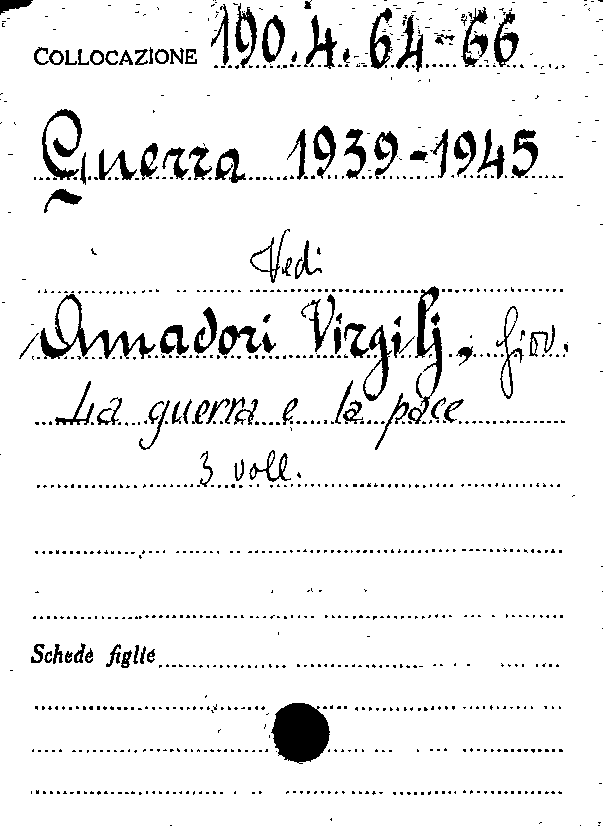 COLLOCAZIONE 190.4.64-66
Guerra 1939-1945
Vedi
Amadori Virgilj, Giov.
La guerra e la pace
3 voll.
Schede figlie